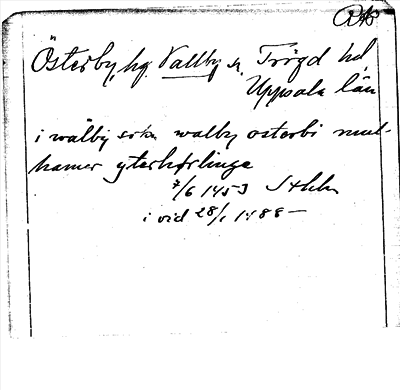 RA
Österby, hg. Vallby sn, Trögd hd,
Uppsala län
i walby sokn walby osterbi mul-
hamer yterkørlinge
7/6 1453 Sthlm
i vid 28/1 1488 —